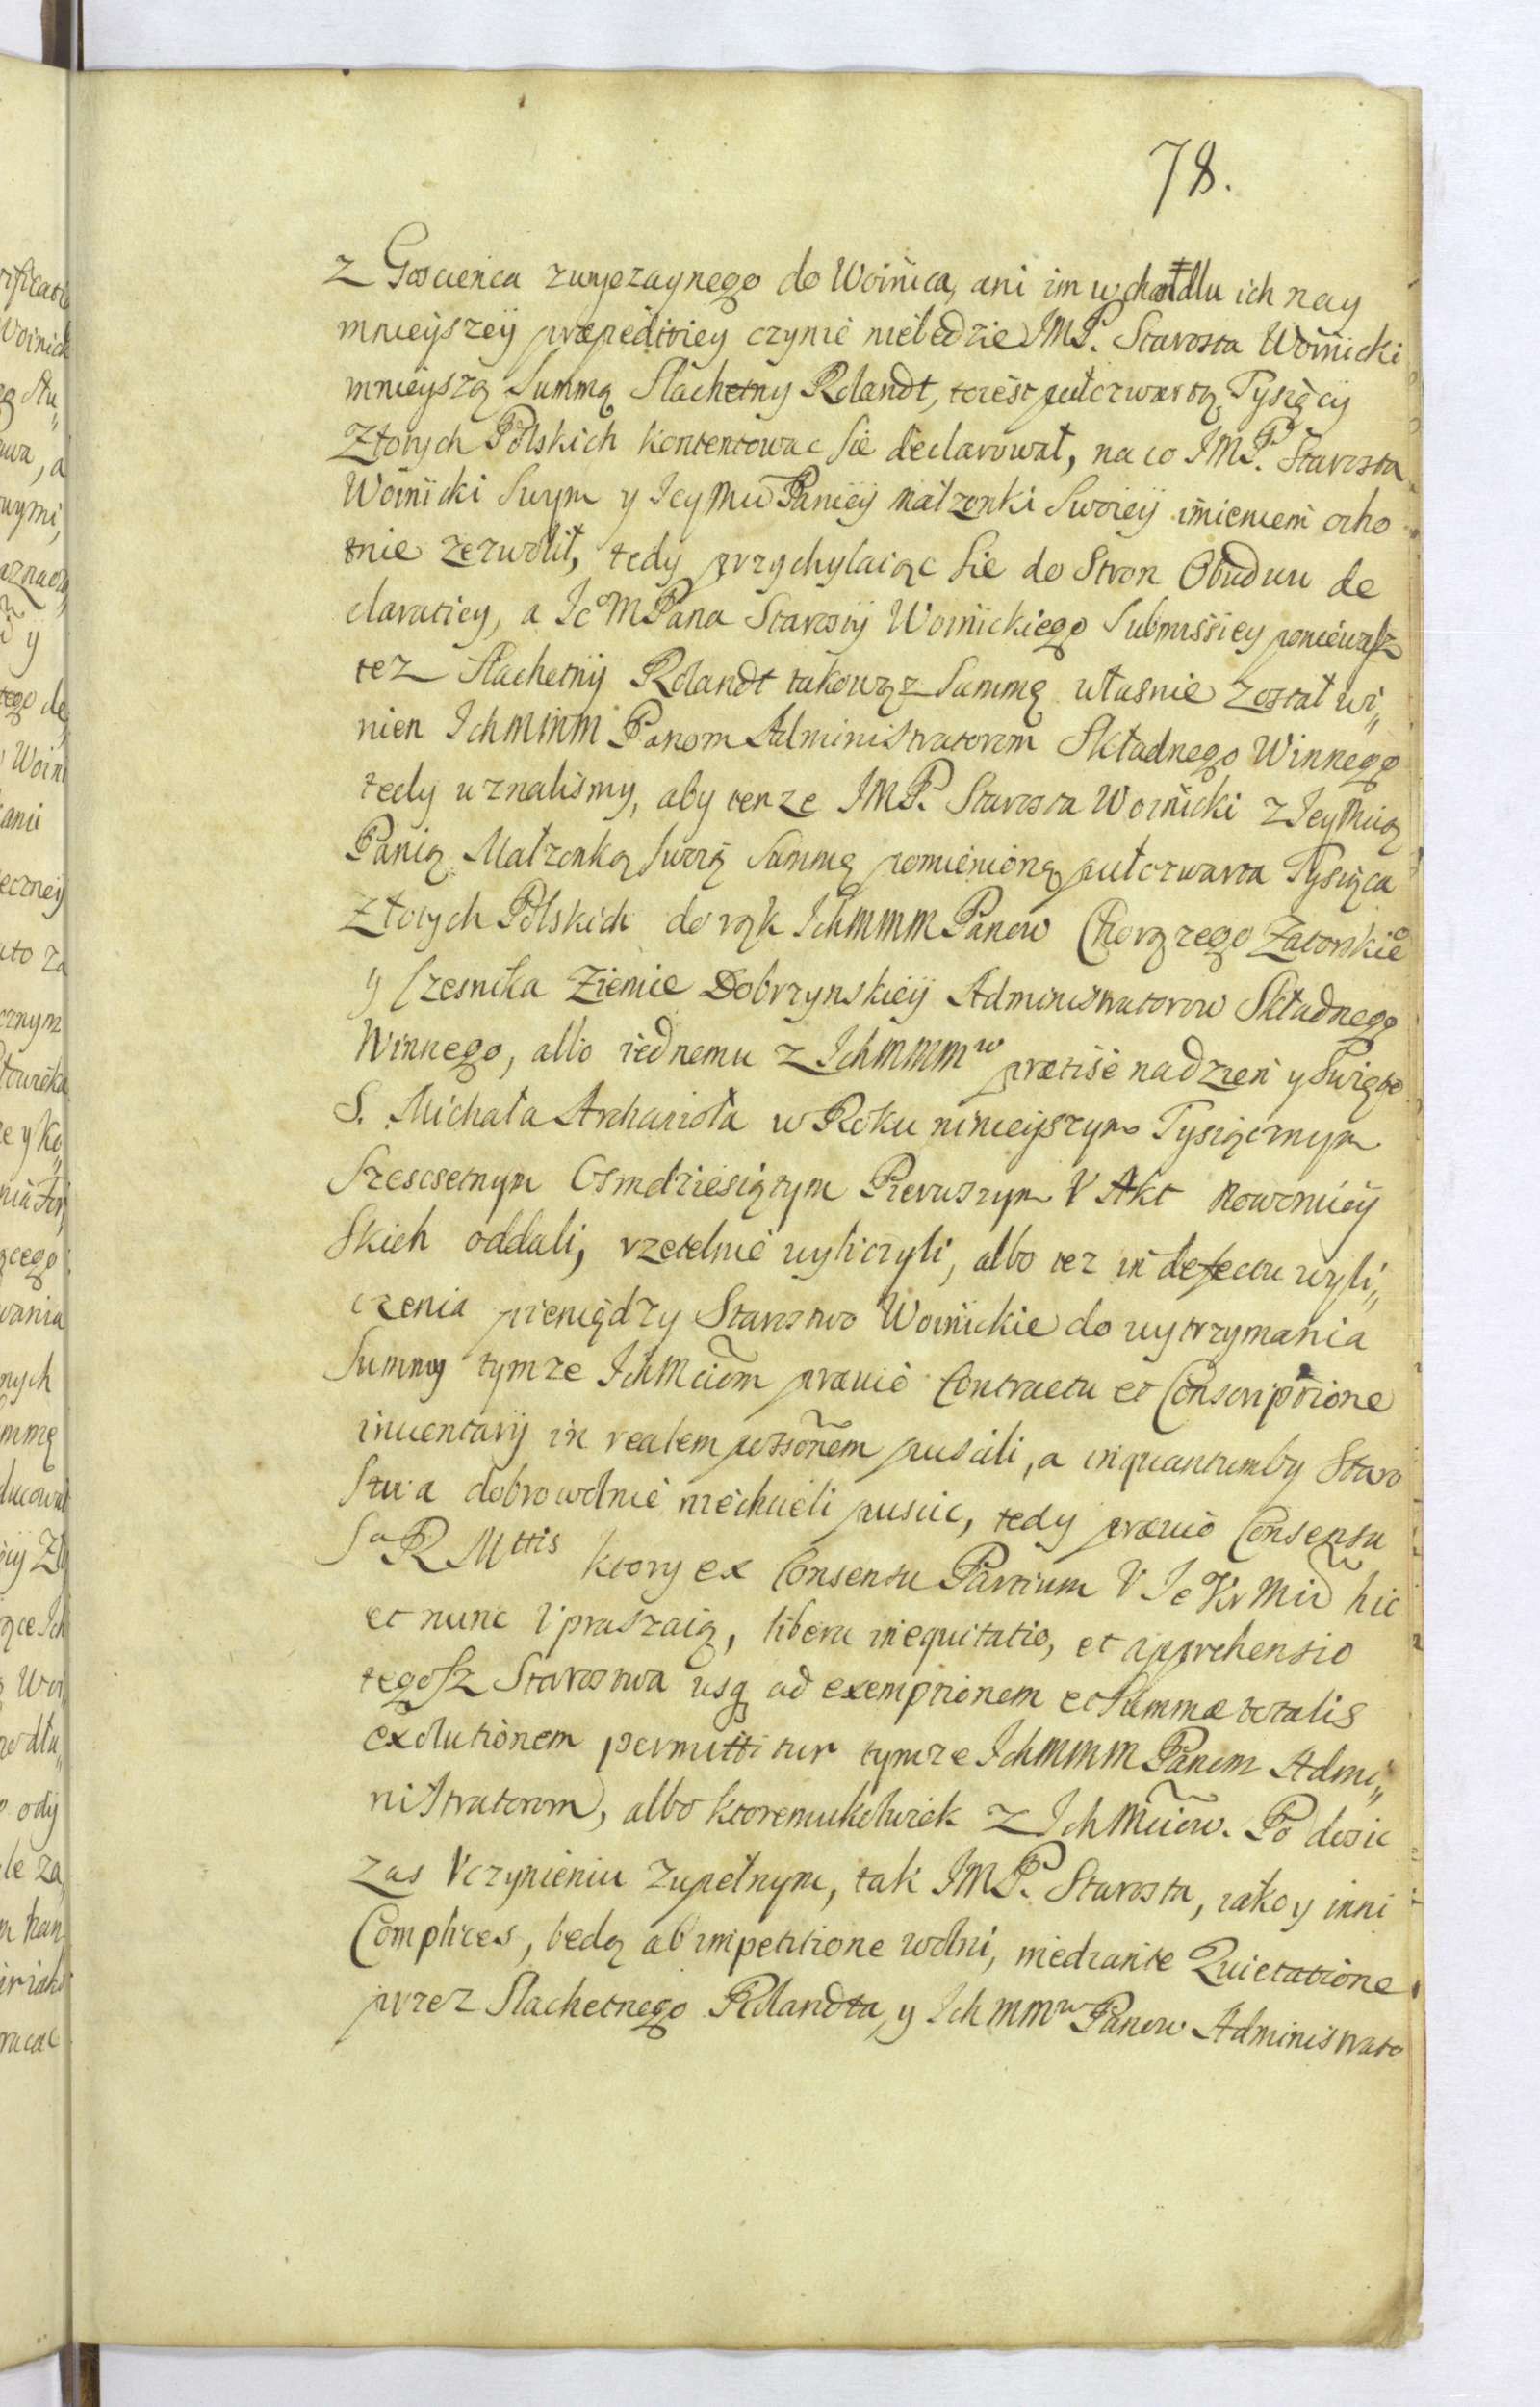 78.
z Goscienca zwyczaynego do Woinica, ani im w chatdlu ich nay
mnieyszey præpeditiey czynić niebedzie JMP. Starosta Woinicki
mnieyszą Summą Slachetny Rolandt, toiest pułczwartą Tysięcy
Złotych Polskich kontentowac sie declarował, na co JMP. Starosta
Woinicki Swym y Jeymu Paniey małzonki Swoiey imieniem ocho
tnie zezwolił, tedy przychylaiąc sie do Stron Obuduu de
claratiey, a JeoMPana Starosty Woinickiego Submissiey poniewasz
tez Slachetny Rolandt takowąz Summę własnie został wi„
nien Ichmmm Panom Administratorom Składnego Winnego
tedy uznalismy, aby tenze JMP. Starosta Woinicki z Jeymcią
Panią Małzonką swoią Summę pomienioną pułczwarta Tysiąca
Złotych Polskich do rąk Ichmmm Panow Chorązego Zatorskieo
y Czesnika Ziemie Dobrzynskiey Administratorow Składnego
Winnego, albo iednemu z Ichmmmw præcise na dzien y Swięto
S. Michała Archanioła w Roku ninieyszym Tysiącznym
Szescsetnym Osmdziesiątym Pierwszym V Akt Nowomiey
skich oddali, rzetelnie wyliczyli, albo tez in defectu wyli„
czenia pieniędzy Starostwo Woinickie do wytrzymania
Summy tymze Ichmciom prævio Contractu et Conscriptione
inventarij in realem possõnem puscili, a inquantumby Staro
stwa dobrowolnie niechcieli puscic, tedy prævio Consensu
SaRMttis ktory ex Consensu Partium V Je Kr Mci hic
et nunc vpraszaią, libera inequitatio, et apprehensio
tegosz Starostwa usq ad exemptionem et Summæ totalis
exolutionem permittitur tymze Ichmmm Panom Admi„
nistratorom, albo ktoremukolwiek z Ichmciow. Po dosic
zas Vczynieniu zupełnym, tak JMP. Starosta, iako y inni
Complices, bedą ab impetitione wolni, mediante Quietatione
przez Slachetnego Rolandta, y Ichmmw Panow Administrato